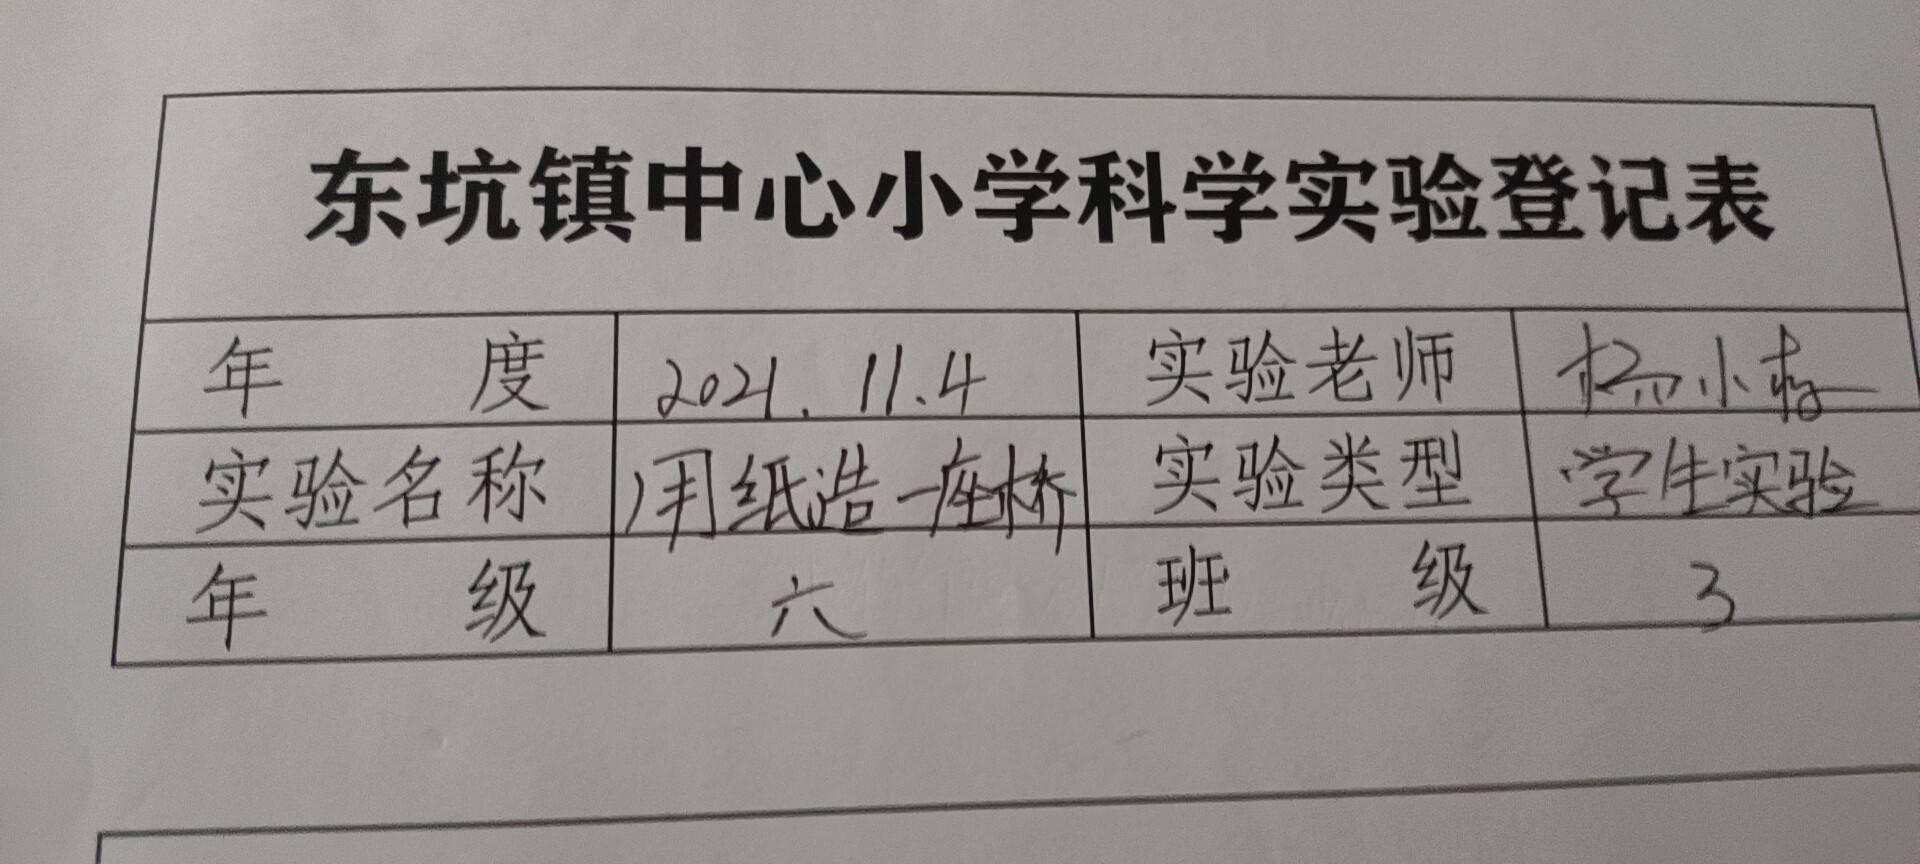 东坑镇中心小学科学实验登记表
年 度 2021.11.4 实验老师 杨小梅
实验名称 用纸造一座桥 实验类型 学生实验
年 级 六 班 级 3